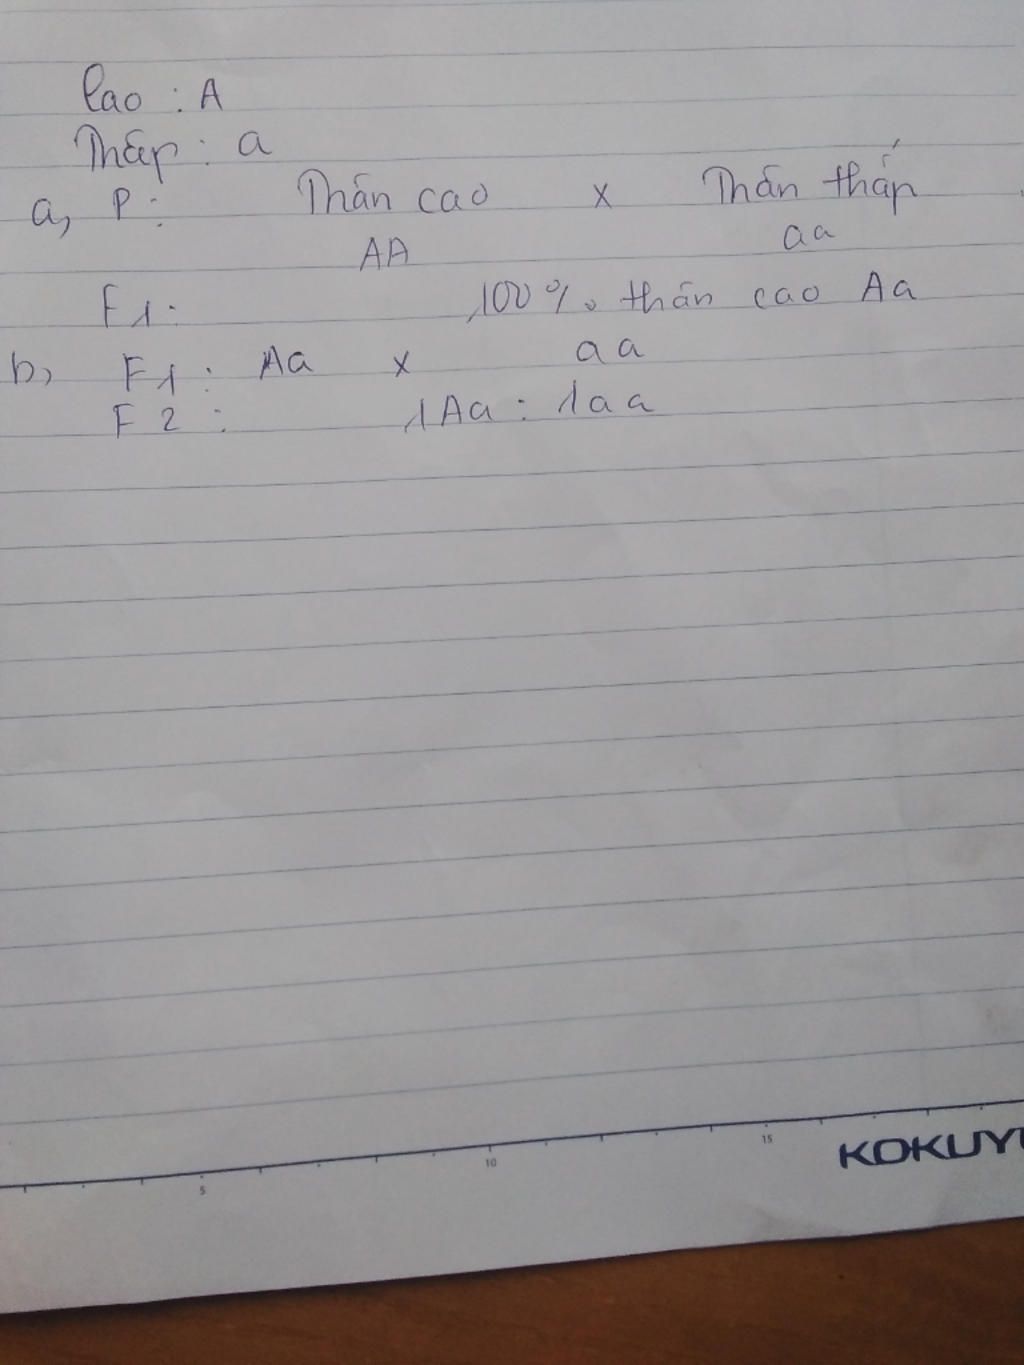 Cao : A
Thấp : a
a, P : Thân cao x Thân thấp
AA aa
F1 : 100% thân cao Aa
b, F1 : Aa x aa
F2 : 1Aa : 1aa
5 10 15
KOKUY